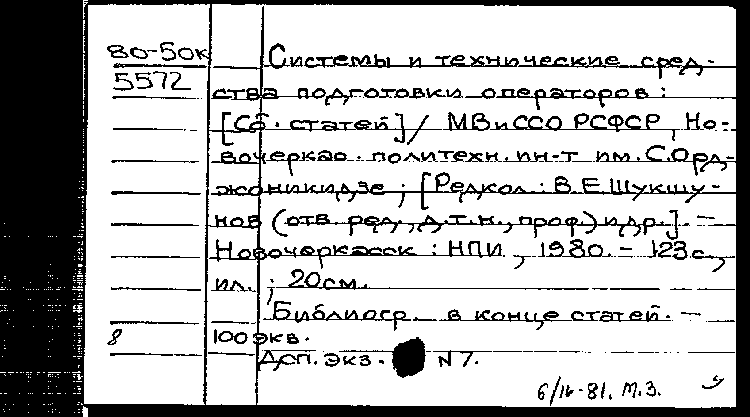 80-50к Системы и технические сред-
5572 ства подготовки операторов :
[Сб. статей] / МВиССО РСФСР, Но-
вочеркас. политехн. ин-т им. С. Орд-
жоникидзе ; [Редкол.: В.Е. Шукшу-
нов (отв. ред., д.т.н., проф) и др.]. –
Новочеркасск : НПИ, 1980. – 123 с.,
ил. ; 20 см.
Библиогр. в конце статей. –
8 100 экв.
Доп. экз. N 7.
6/16-81. М.З.